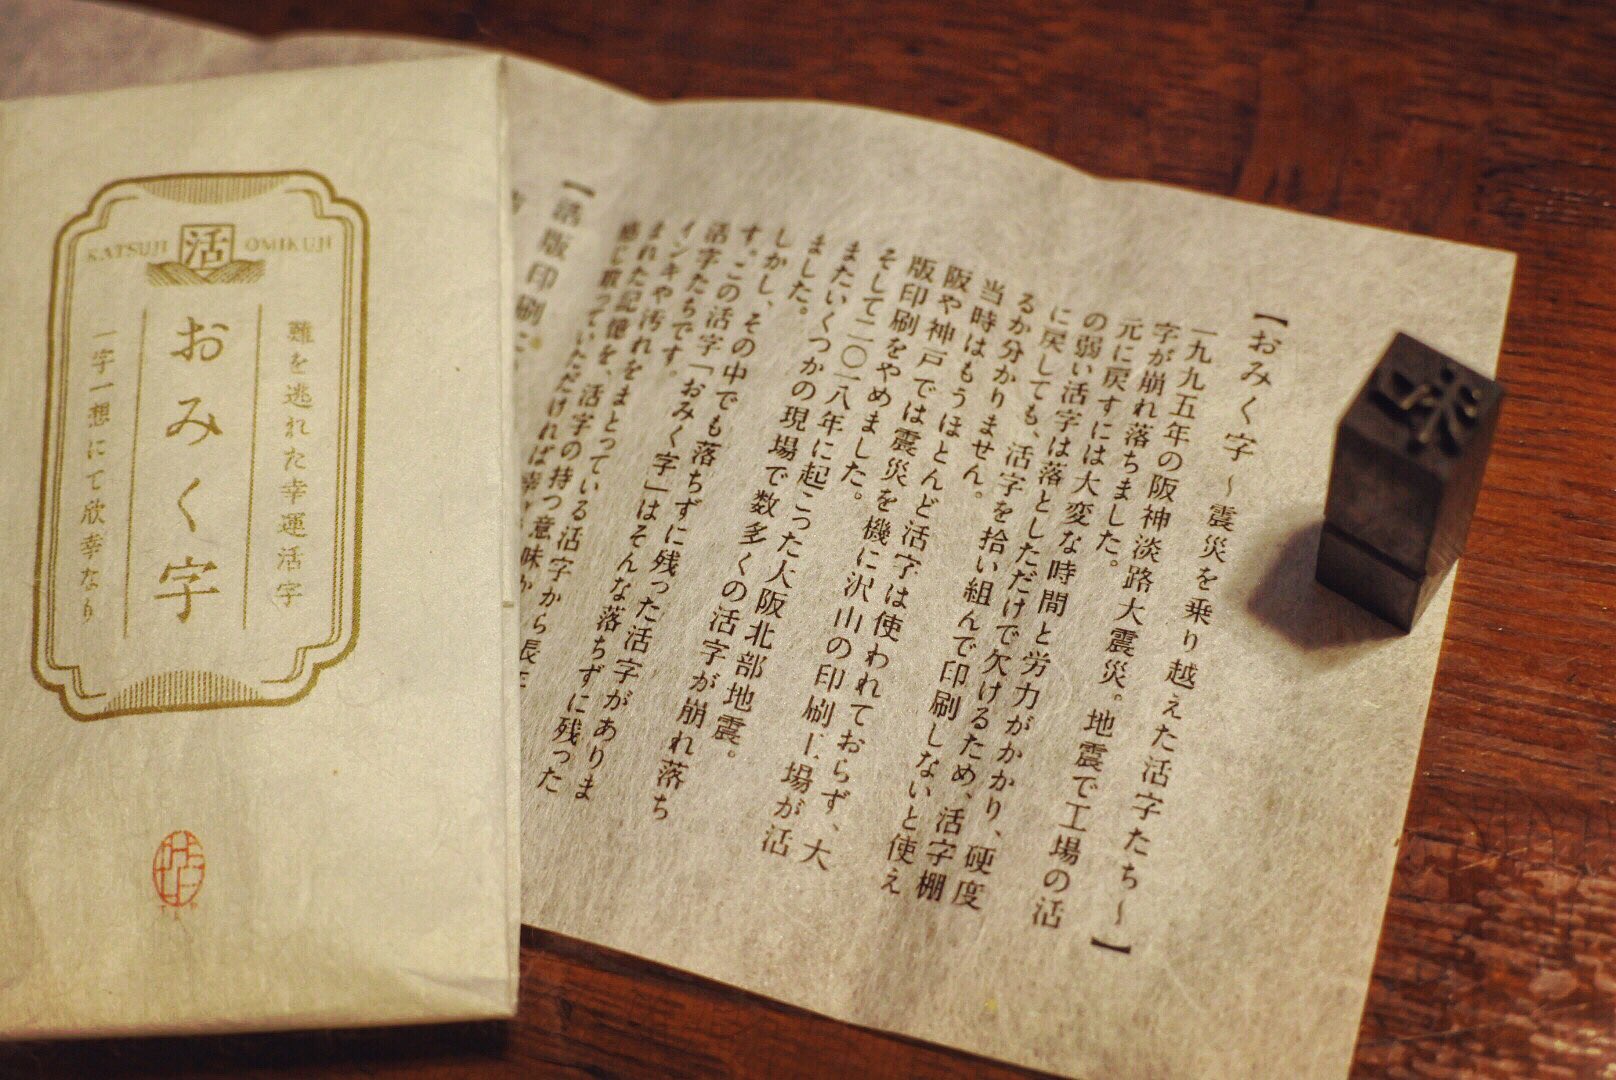 KATSUJI 活 OMIKUJI
難を逃れた幸運活字
おみく字
一字一想にて欣幸なり
【おみく字 〜震災を乗り越えた活字たち〜】
一九九五年の阪神淡路大震災。地震で工場の活
字が崩れ落ちました。
元に戻すには大変な時間と労力がかかり、硬度
の弱い活字は落としただけで欠けるため、活字棚
に戻しても、活字を拾い組んで印刷しないと使え
るか分かりません。
当時はもうほとんど活字は使われておらず、大
阪や神戸では震災を機に沢山の印刷工場が活
版印刷をやめました。
そして二〇一八年に起こった大阪北部地震。
またいくつかの現場で数多くの活字が崩れ落ち
ました。
しかし、その中でも落ちずに残った活字がありま
す。この活字「おみく字」はそんな落ちずに残った
活字たちです。
インキや汚れをまとっている活字から長年
まれた記憶を、活字の持つ意味か
感じ取っていただければ幸
【活版印刷に